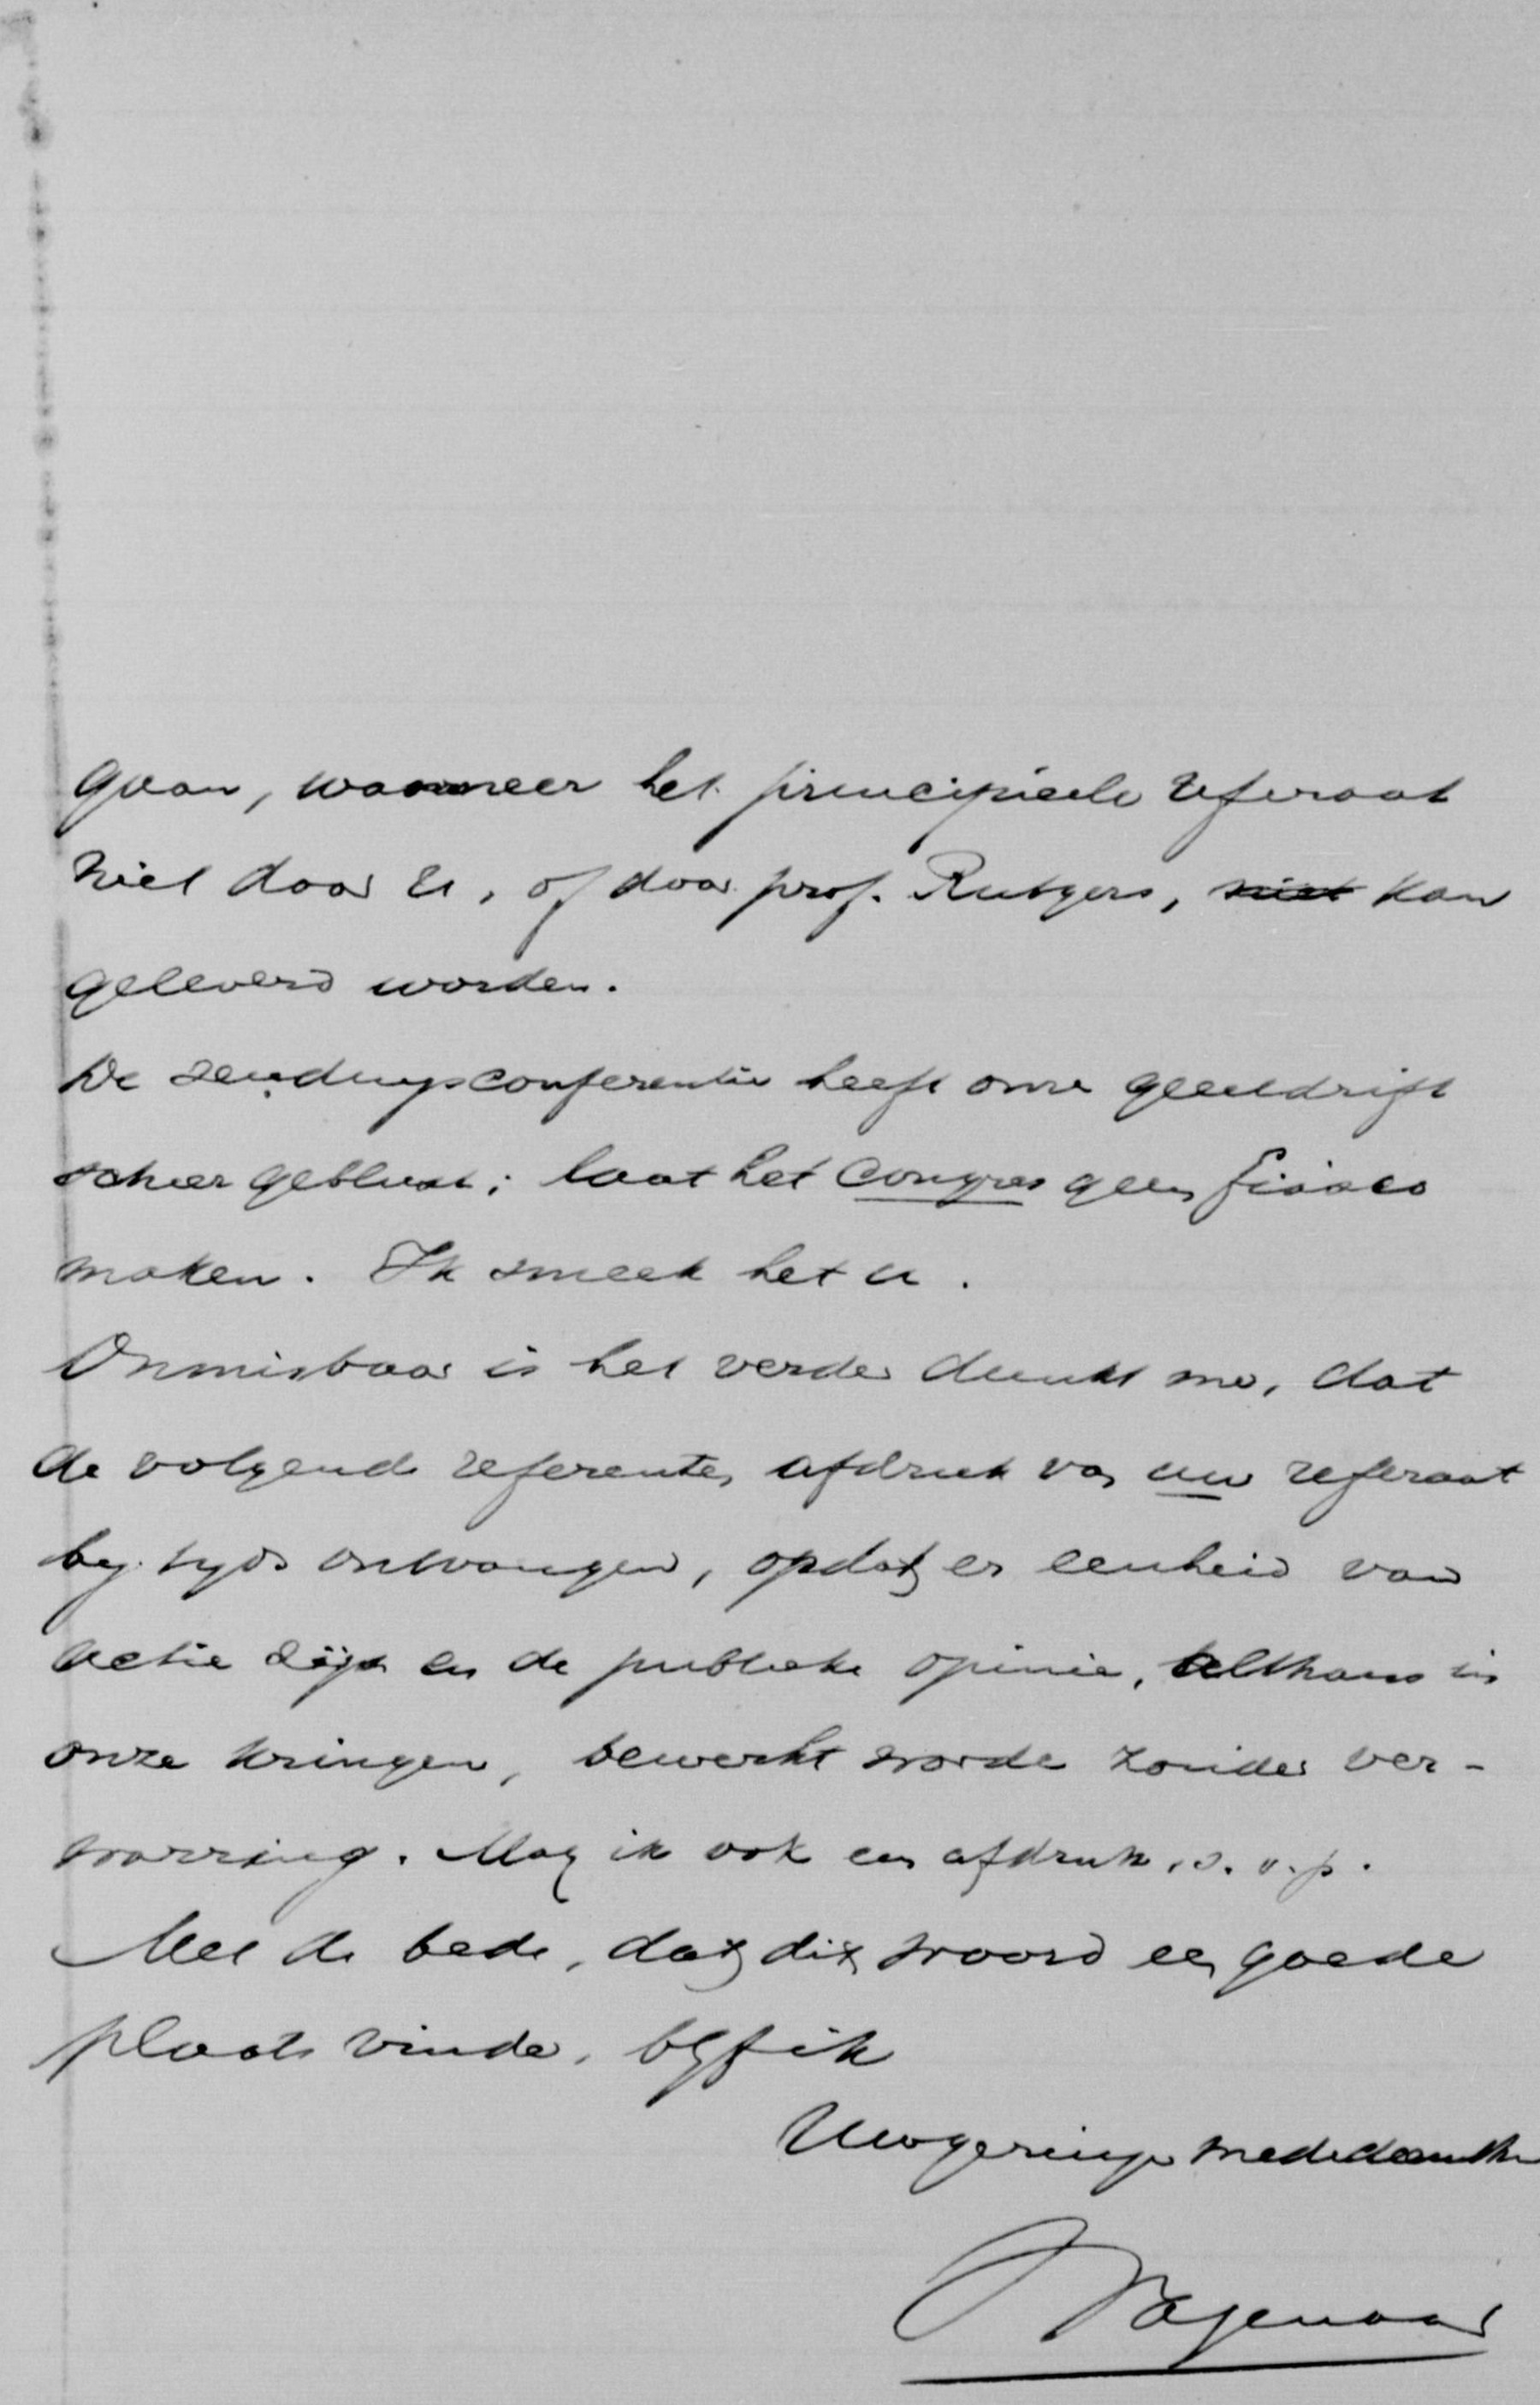 gaan, wanneer het principieele referaat
niet door U, of door prof. Rutgers, niet kan
geleverd worden.
De zendingsconferentie heeft onze geestdrift
schier gebluscht; laat het Congres geen fiasco
maken. Ik smeek het u.
Onmisbaar is het verder dunkt me, dat
de volgende referenten afdruk van uw referaat
bij tijds ontvangen, opdat er eenheid van
actie zij en de publieke opinie, althans in
onze kringen, bewerkt worde zonder ver-
warring. Mag ik ook een afdruk, s. v. p.
Met de bede, dat dit woord een goede
plaats vinde, blijf ik
Uw geringe
Wagenaar